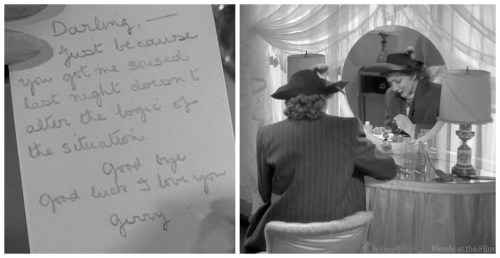 Darling, —
Just because
you got me soused
last night doesn't
alter the logic of
the situation.
Good bye
Good luck I love you
Gerry
Blonde at the Film